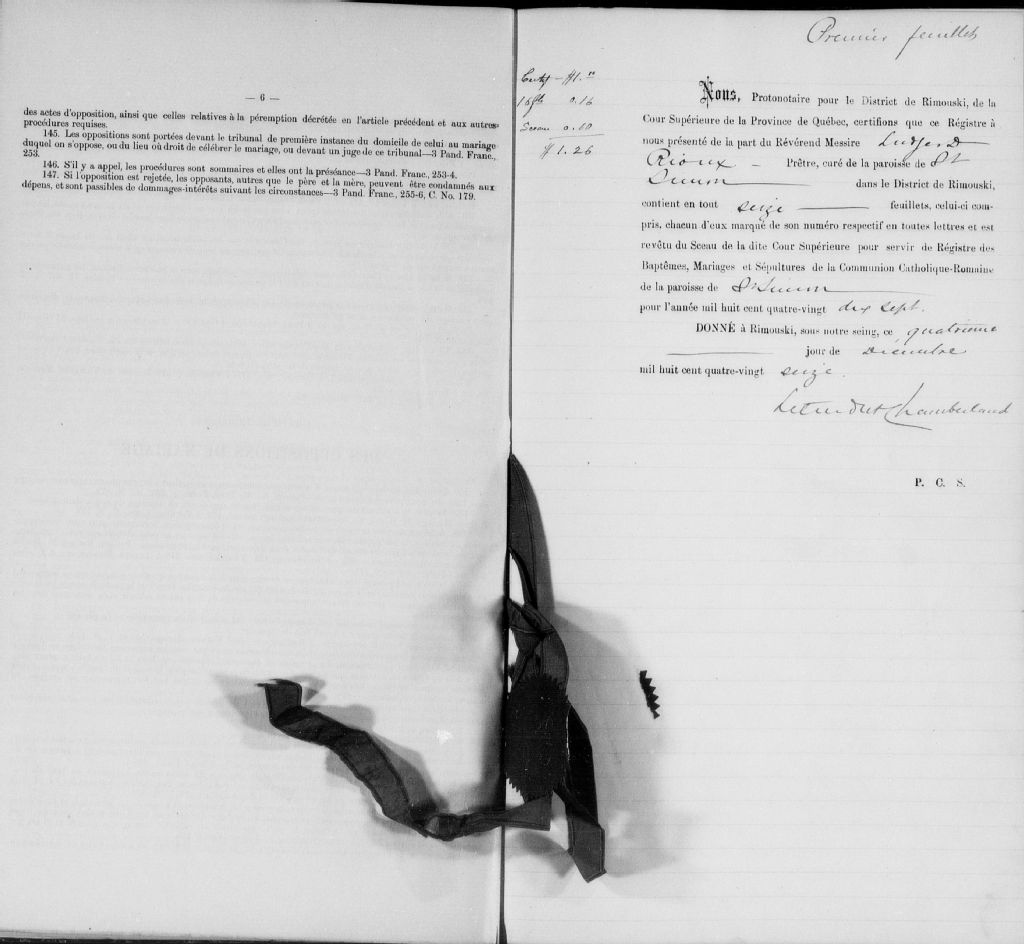 — 6 —
des actes d'opposition, ainsi que celles relatives à la péremption décrétée en l'article précédent et aux autres
procédures requises.
145. Les oppositions sont portées devant le tribunal de première instance du domicile de celui au mariage
duquel on s'oppose, ou du lieu où droit de célébrer le mariage, ou devant un juge de ce tribunal—3 Pand. Franc.,
253.
146. S'il y a appel, les procédures sont sommaires et elles ont la préséance—3 Pand. Franc., 253-4.
147. Si l'opposition est rejetée, les opposants, autres que le père et la mère, peuvent être condamnés aux
dépens, et sont passibles de dommages-intérêts suivant les circonstances—3 Pand. Franc., 255-6, C. No. 179.
Premier feuillet
Certif — $1."
16 ffts 0.16
Sceau 0.10
$ 1.26
Nous, Protonotaire pour le District de Rimouski, de la
Cour Supérieure de la Province de Québec, certifions que ce Régistre à
nous présenté de la part du Révérend Messire Ludger D
Rioux — Prêtre, curé de la paroisse de St
Simon — dans le District de Rimouski,
contient en tout seize — feuillets, celui-ci com-
pris, chacun d'eux marqué de son numéro respectif en toutes lettres et est
revêtu du Sceau de la dite Cour Supérieure pour servir de Régistre des
Baptêmes, Mariages et Sépultures de la Communion Catholique-Romaine
de la paroisse de St Simon —
pour l'année mil huit cent quatre-vingt dix sept.
DONNÉ à Rimouski, sous notre seing, ce quatrième
— jour de Décembre
mil huit cent quatre-vingt seize.
Letendre & Chamberland
P. C. S.